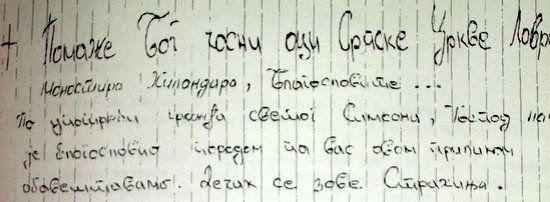 + Помаже Бог часни оци Српске Цркве Лавре
манастира Хиландара, благословите ...
По молитвама Светог Симеона, Господ
је благословио породом па вас овом приликом
обавештавамо. Дечак се зове Страхиња.